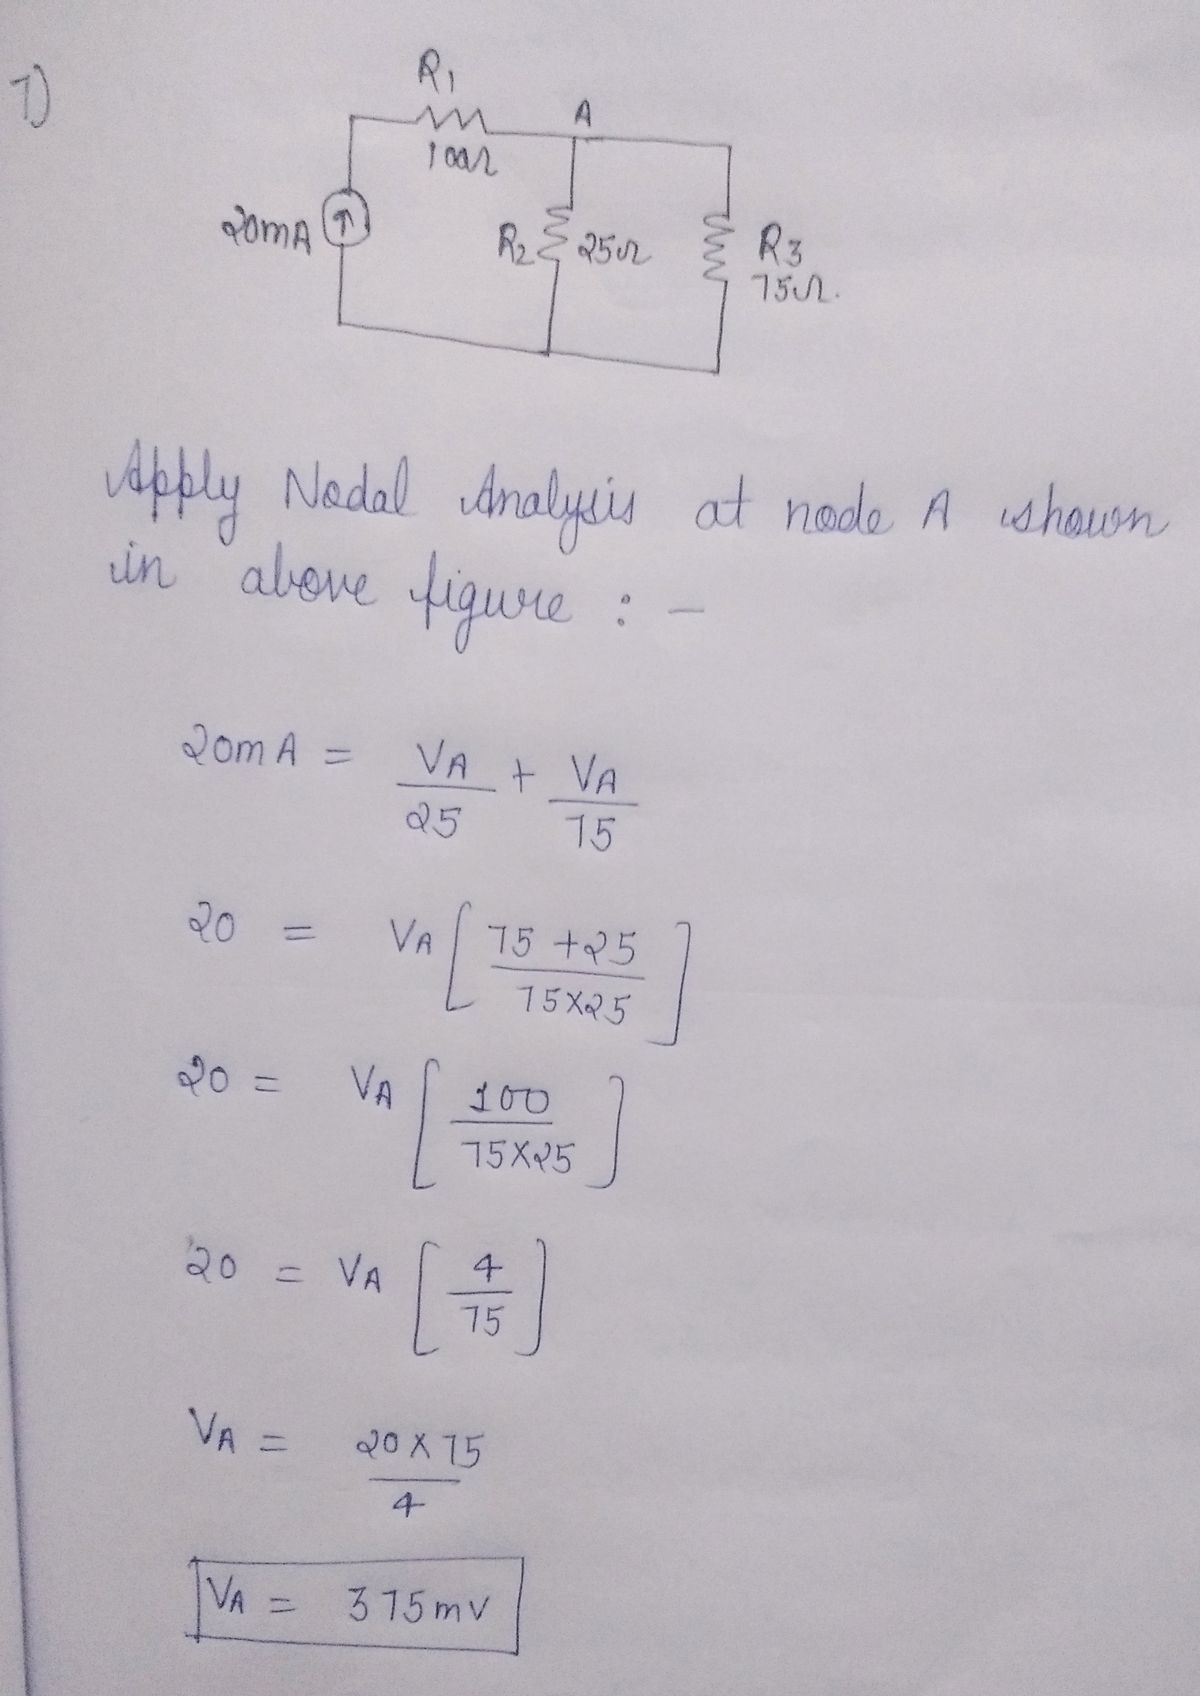 7)
R1
100Ω
A
20mA
R2
25Ω
R3
75Ω.
Apply Nodal Analysis at node A shown
in above figure : -
20mA = VA/25 + VA/75
20 = VA [ 75 + 25 / 75×25 ]
20 = VA [ 100 / 75×25 ]
20 = VA [ 4 / 75 ]
VA = 20 × 75 / 4
VA = 375mv